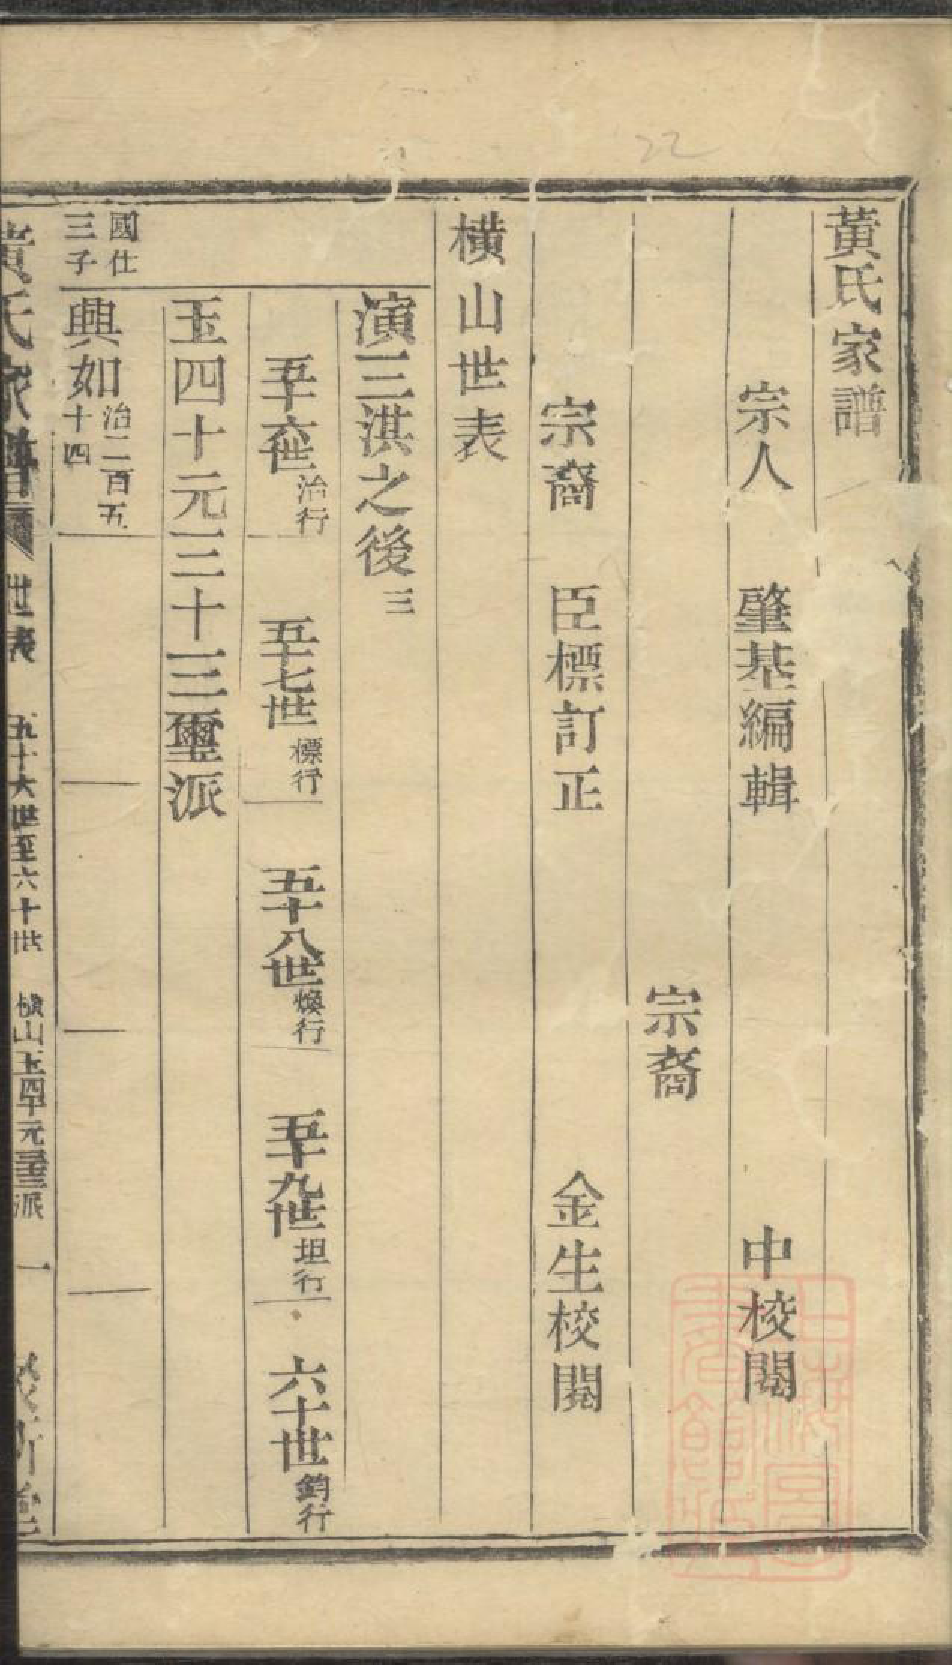 22
黃氏家譜
宗人 肇基編輯 中校閱
宗裔
宗裔 臣標訂正 金生校閱
橫山世表
演三淇之後三
五十六世治行 五十七世標行 五十八世煥行 五十九世坦行 六十世銷行
玉四十元三十三璽派
國仕
三子
興如治二百五十四
黃氏家譜 世表 五十六世至六十世 橫山玉四十元三十三派 一